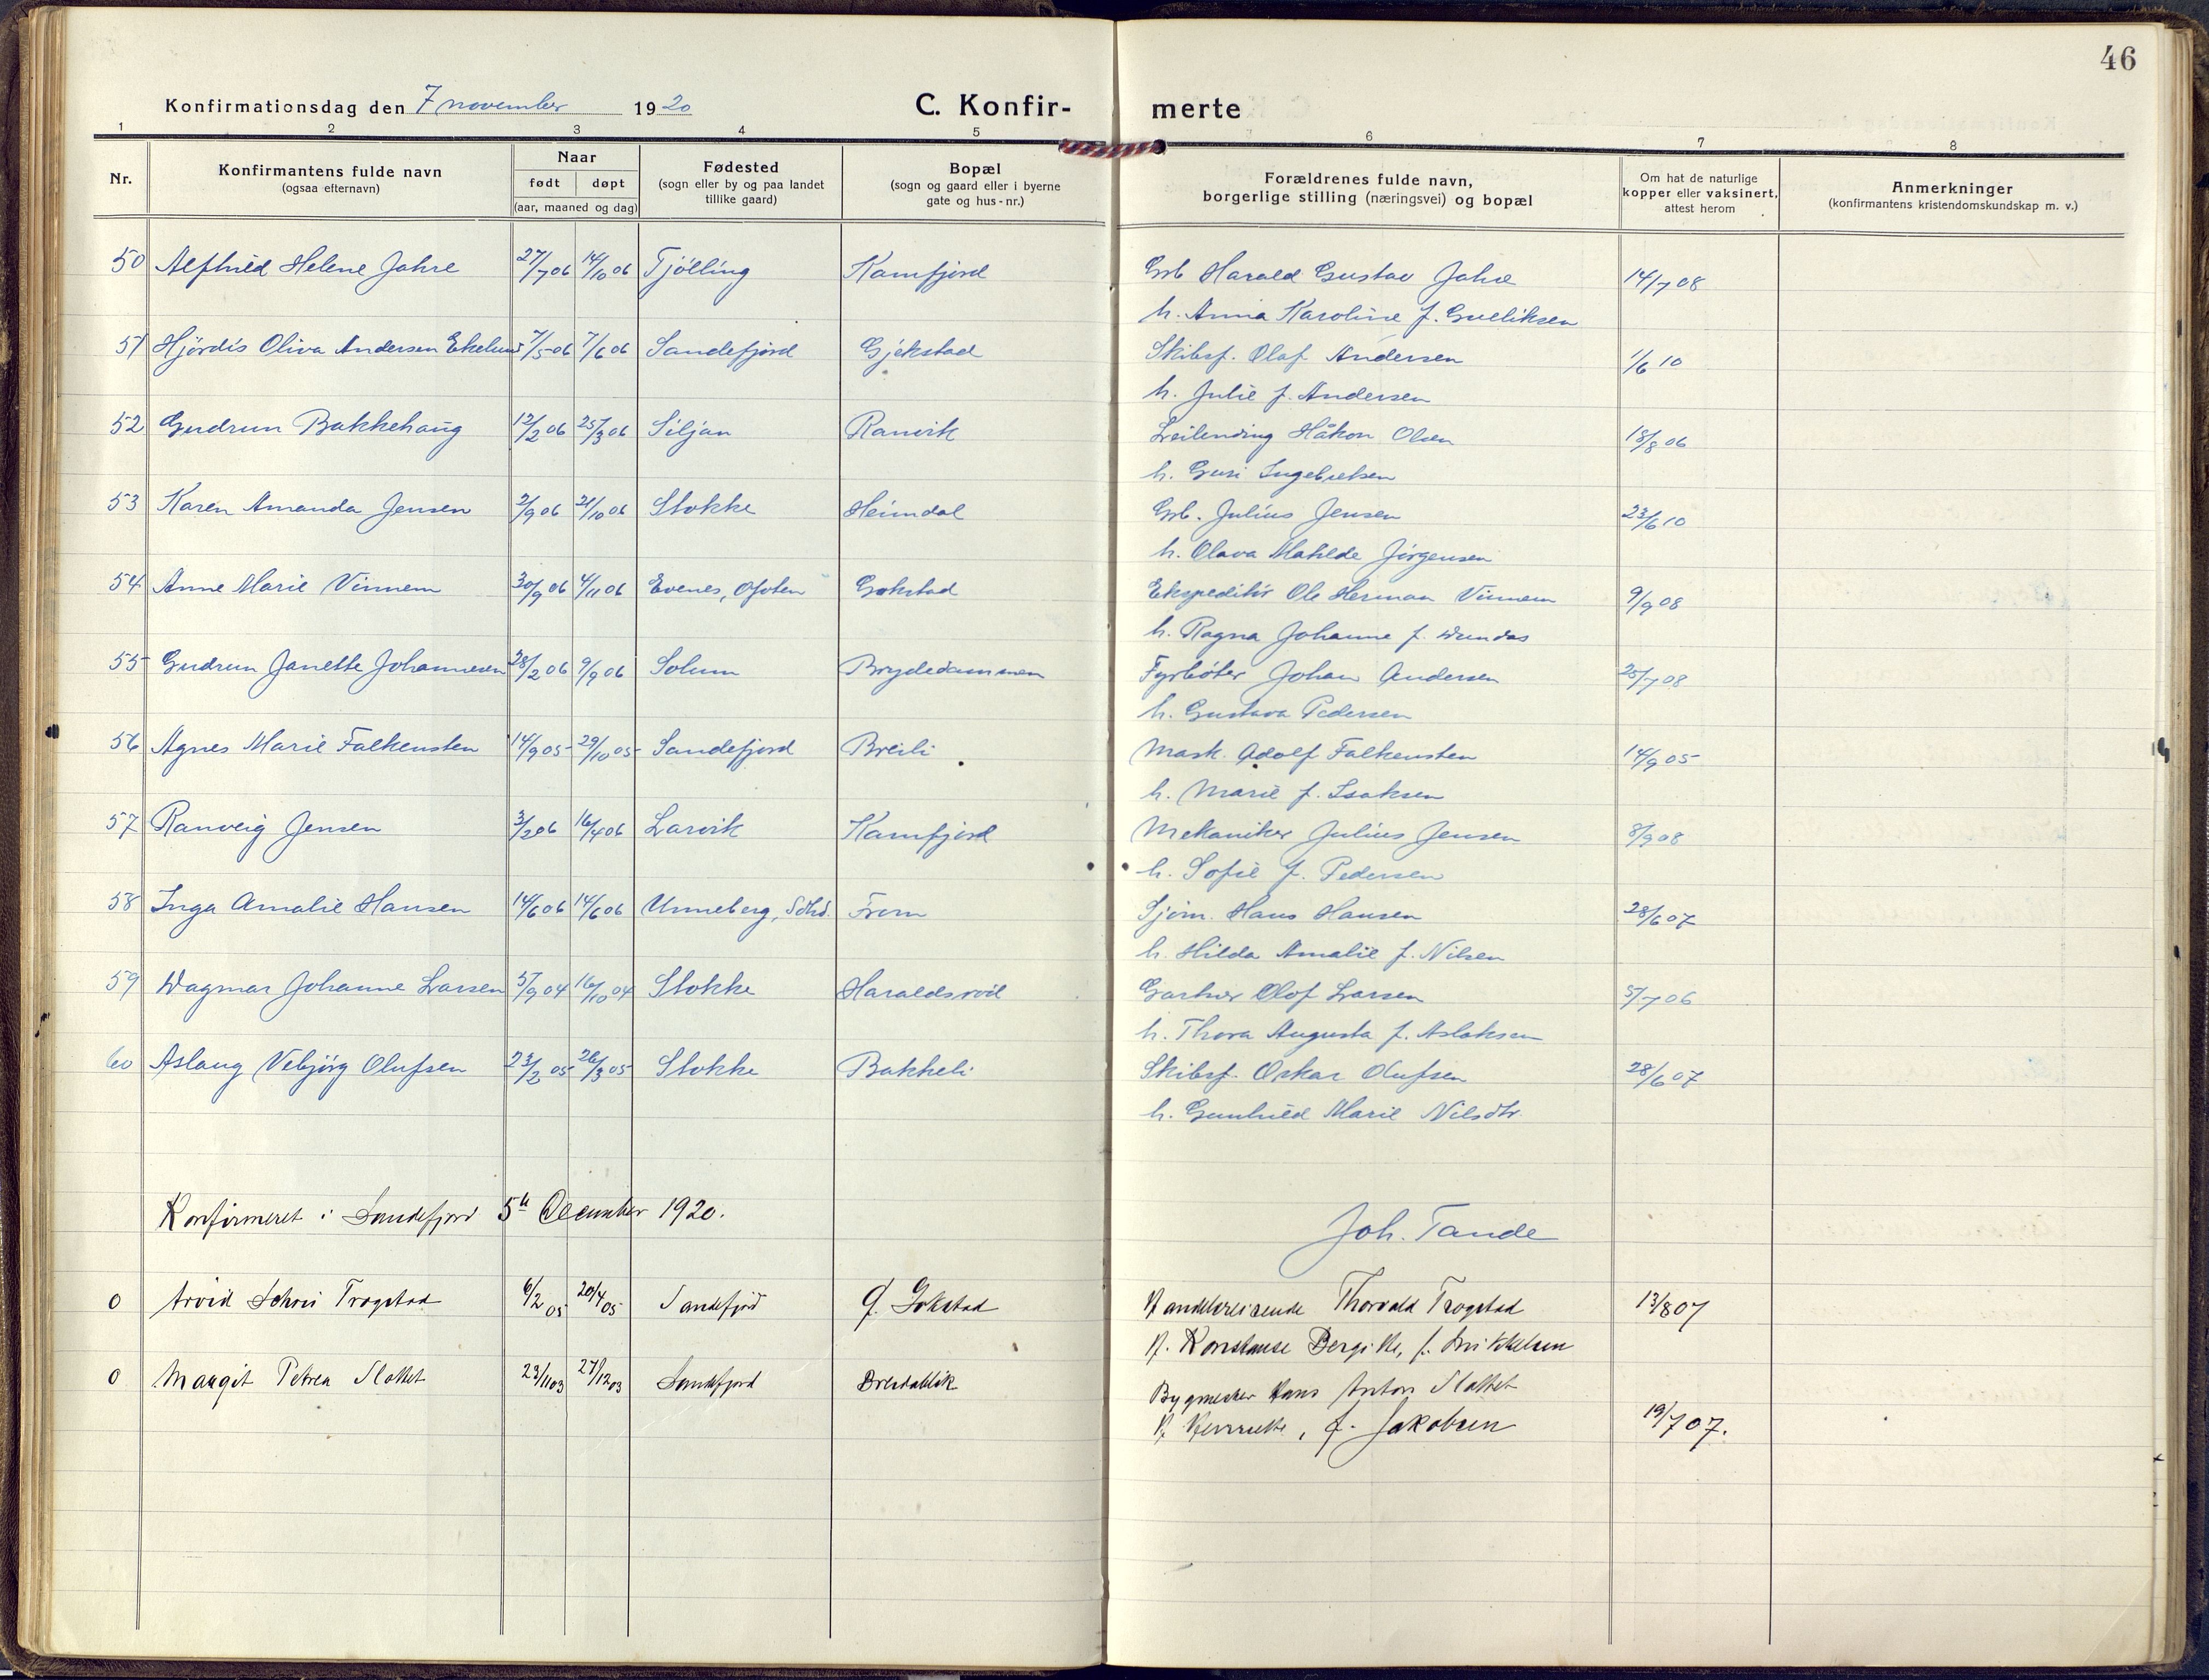 46
Konfirmationsdag den 7 november 1920 C. Konfir- merte
1 2 3 4 5 6 7 8
Nr. Konfirmantens fulde navn (ogsaa efternavn) Naar født døpt (aar, maaned og dag) Fødested (sogn eller by og paa landet tillike gaard) Bopæl (sogn og gaard eller i byerne gate og hus-nr.) Forældrenes fulde navn, borgerlige stilling (næringsvei) og bopæl Om hat de naturlige kopper eller vaksinert, attest herom Anmerkninger (konfirmantens kristendomskundskap m. v.)
50 Alfhild Helene Jahre 27/7 06 14/10 06 Tjølling Kamfjord Grb Harald Gustav Jahre 14/7 08
h. Anna Karoline f. Gulliksen
51 Hjördis Oliva Andersen Ekelund 7/5 06 7/6 06 Sandefjord Gjekstad Skibsf. Olaf Andersen 1/6 10
h. Julie f. Andersen
52 Gudrun Bakkehaug 12/2 06 25/3 06 Siljan Ranvik Leilending Håkon Olsen 18/8 06
h. Guri Ingebretsen
53 Karen Amanda Jensen 2/9 06 21/10 06 Stokke Heimdal Grb. Julius Jensen 23/6 10
h. Olava Mathilde Jørgensen
54 Anne Marie Vinnem 30/9 06 4/11 06 Evenes, Ofoten Gokstad Ekspeditör Ole Herman Vinnem 9/9 08
h. Ragna Johanne f. Dundas
55 Gudrun Janette Johannesen 28/2 06 9/9 06 Solum Brydedammen Fyrbøter Johan Andersen 25/7 08
h. Gustava Pedersen
56 Agnes Marie Falkensten 14/9 05 29/10 05 Sandefjord Breili Mask. Adolf Falkensten 14/9 05
h. Marie f. Isaksen
57 Ranveig Jensen 3/2 06 16/4 06 Larvik Kamfjord Mekaniker Julius Jensen 8/9 08
h. Sofie f. Pedersen
58 Inga Amalie Hansen 14/6 06 14/6 06 Unneberg, Sdhd. From Sjøm. Hans Hansen 28/6 07
h. Hilda Amalie f. Nilsen
59 Dagmar Johanne Larsen 5/9 04 16/10 04 Stokke Haraldsrød Gartner Olof Larsen 5/7 06
h. Thora Augusta f. Aslaksen
60 Aslaug Vebjørg Olufsen 23/2 05 26/3 05 Stokke Bakkeli Skibsf. Oskar Olufsen 28/6 07
h. Gunhild Marie Nilsdtr.
Konfirmeret i Sandefjord 5te December 1920.
Joh. Tande
0 Arvid Trogstad 6/2 05 20/4 05 Sandefjord G. Gokstad Handelsreisende Thorvald Trogstad 13/8 07
H. Konstanse Bergitte, f. Mikkelsen
0 Margit Petrea Slottet 23/11 03 27/12 03 Sandefjord Bygmester Hans Anton Slottet
H. Henriette, f. Jakobsen 19/7 07.